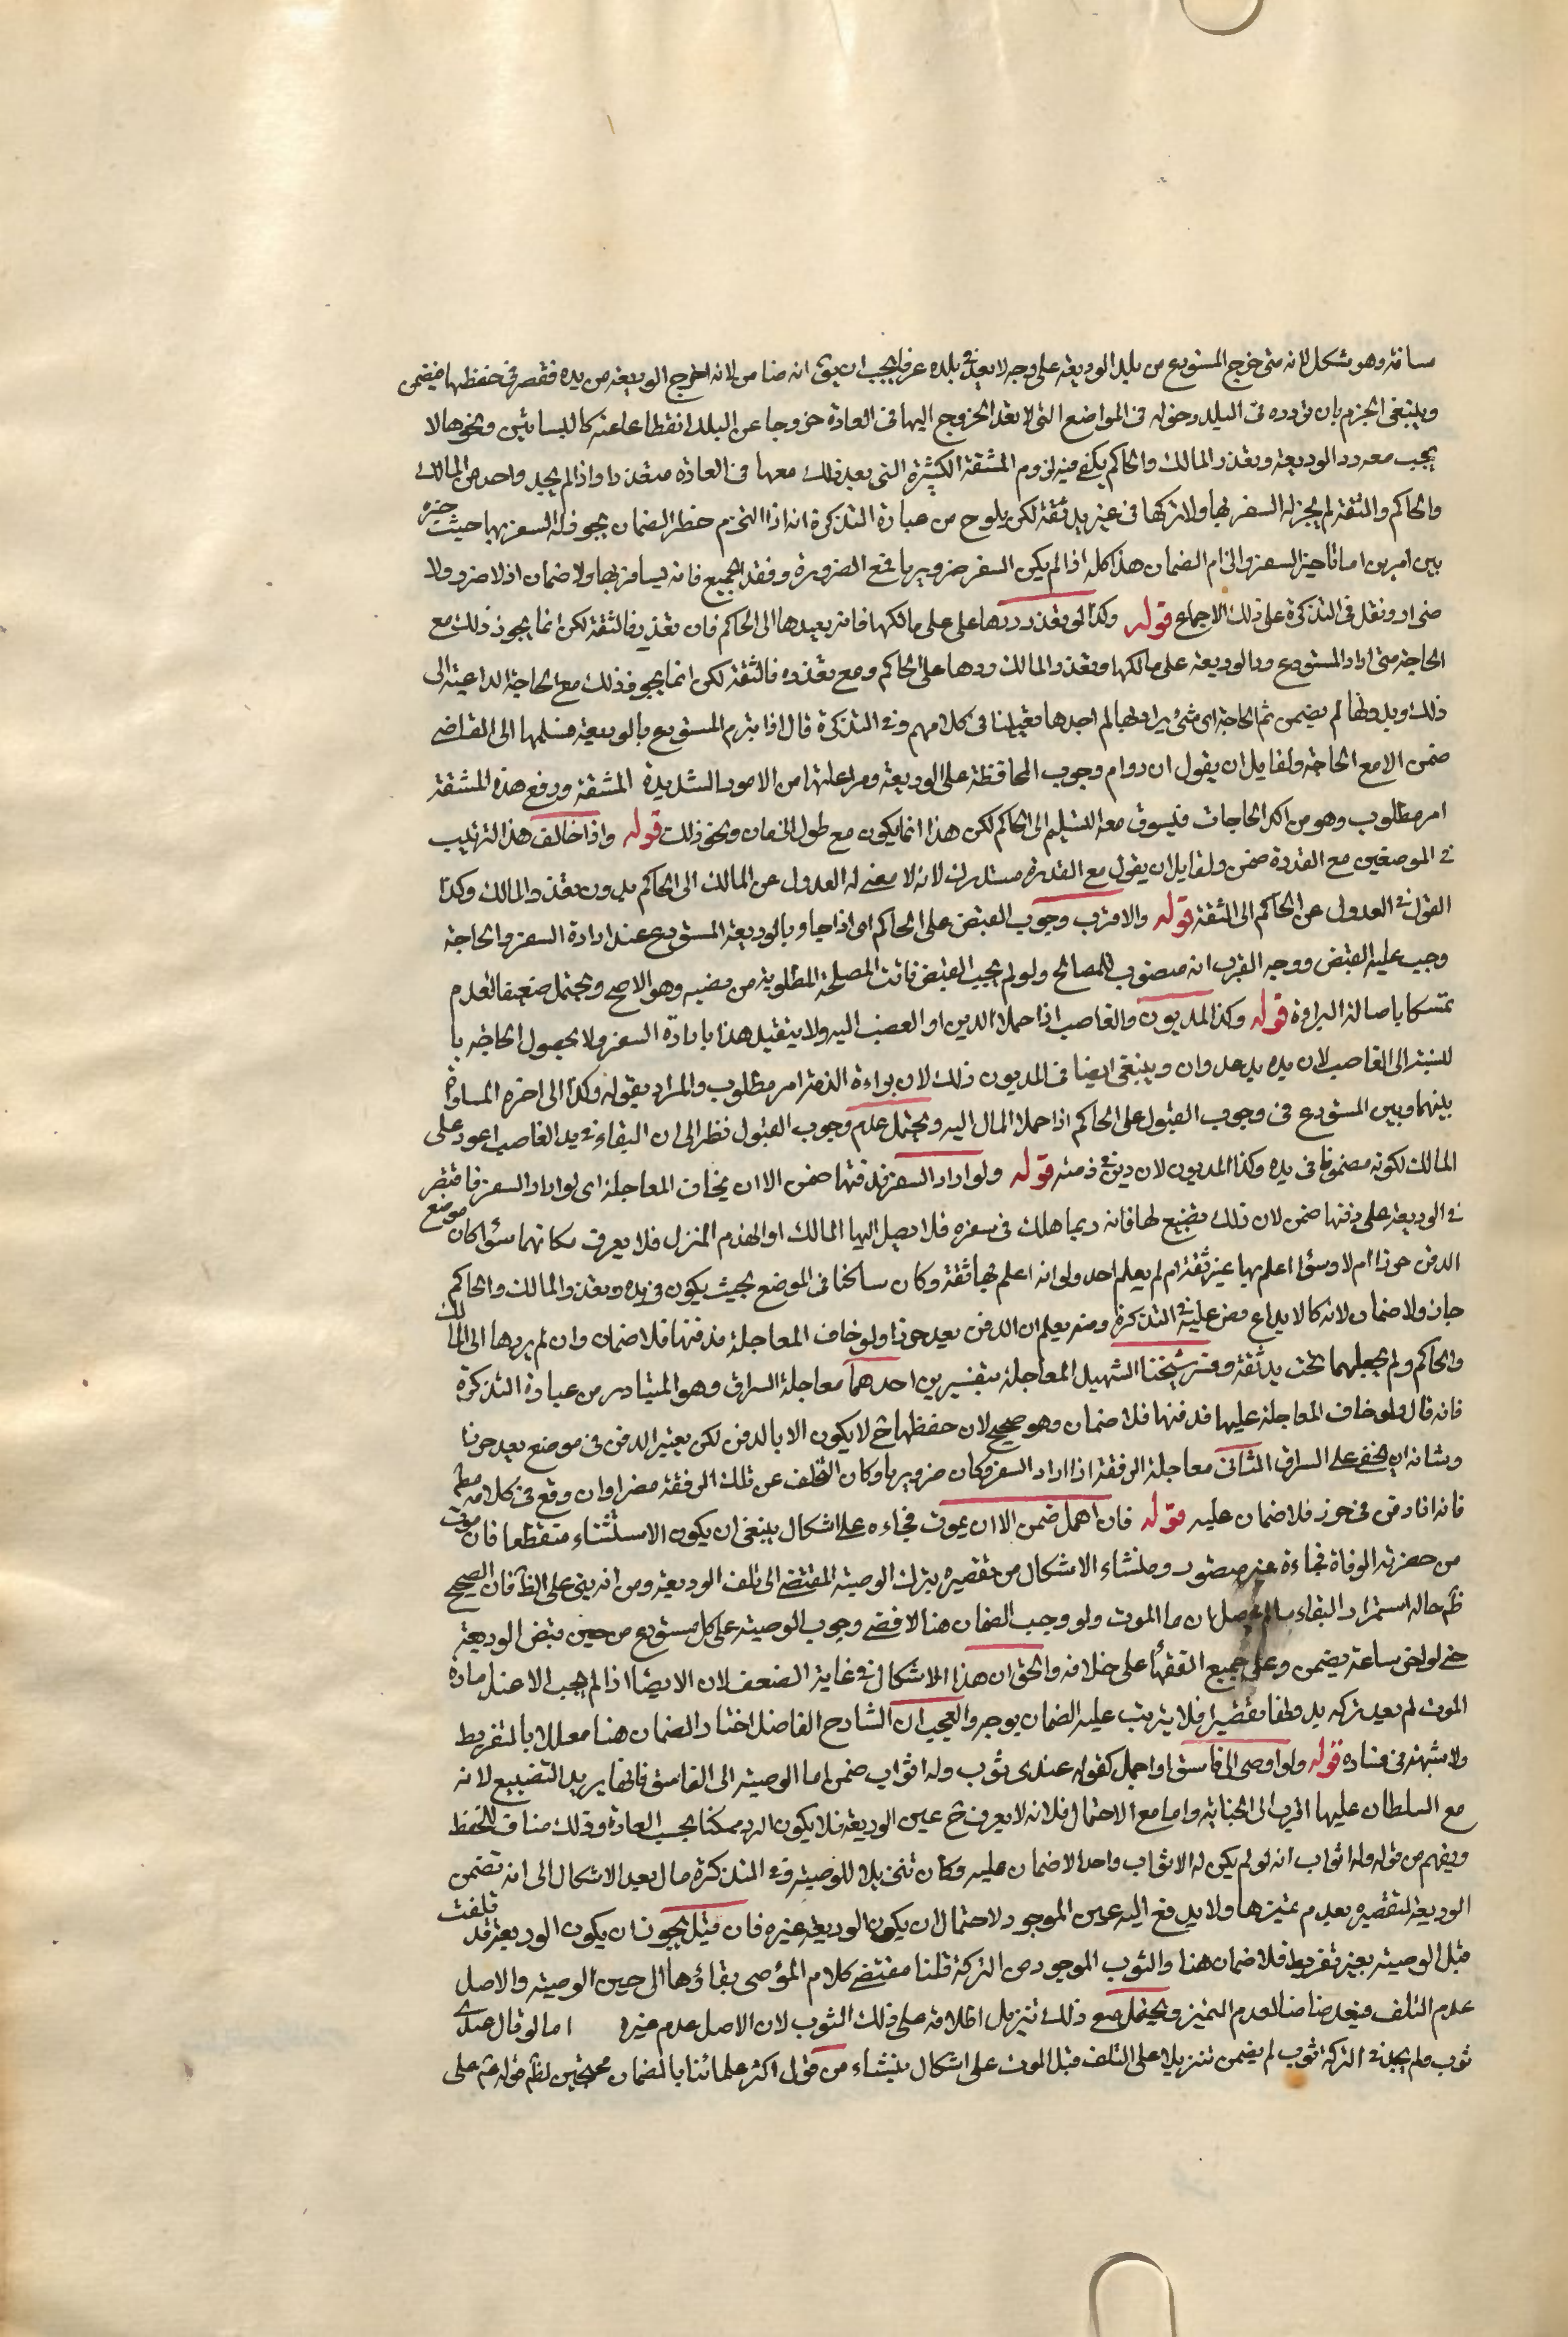 مسافة وهو مشكل لانه متى خرج المستودع من بلد الوديعة على وجه لا يعد في بلده عرفا يجب ان يق انه ضامن لانه اخرج الوديعة من يده فقصر في حفظها فيضمن
وينبغي الجزم بان تردده في البلد وحوله في المواضع التي لا يعد الخروج اليها في العادة خروجا عن البلد انقطاعا عنه كالبساتين ونحوها لا
يجب معه رد الوديعة وتعذر المالك والحاكم يكفي فيه لزوم المشقة الكثيرة التي يعد ذلك معها في العادة متعذرا واذا لم يجد واحد من المالك
والحاكم والثقة لم يجز له السفر بها ولا تركها في غير يد ثقة لكن يلوح من عبارة التذكرة انه اذا التزم خطر الضمان يجوز له السفر بها حيث خيره
بين امرين اما تاخير السفر والتزام الضمان هذا كله اذا لم يكن السفر ضروريا فمع الضرورة وفقد الجميع فانه يسافر بها ولا ضمان اذ لا ضرر ولا
ضرار ونقل في التذكرة على ذلك الاجماع قوله وكذا لو تعذر ردها على على مالكها فانه يعيدها الى الحاكم فان تعذر فالثقة لكن انما يجوز ذلك مع
الحاجة متى اراد المستودع رد الوديعة على مالكها وتعذر المالك ردها على الحاكم ومع تعذره فالثقة لكن انما يجوز ذلك مع الحاجة الداعية الى
ذلك وبدونها لم يضمن ثم الحاجة اي شيء يراد بها لم اجدها في كلامهم وفي التذكرة قال اذا تبرم المستودع بالوديعة فسلمها الى القاضي
ضمن الا مع الحاجة ولقايل ان يقول ان دوام وجوب المحافظة على الوديعة ومراعاتها من الامور الشديدة المشقة ودفع هذه المشقة
امر مطلوب وهو من اكد الحاجات فليسوق معه التسليم الى الحاكم لكن هذا انما يكون مع طول الزمان ونحو ذلك قوله واذا خالف هذا الترتيب
في الموضعين مع القدرة ضمن ولقايل ان يقول مع القدرة مستدرك لانه لا معنى له العدول عن المالك الى الحاكم بدون تعذر المالك وكذا
القول في العدول عن الحاكم الى الثقة قوله والاقرب وجوب القبض على الحاكم اي اذا جاء بالوديعة المستودع عند ارادة السفر والحاجة
وجب عليه القبض ووجه القرب انه منصوب للمصالح ولو لم يجب القبض فاتت المصلحة المطلوبة من نصبه وهو الاصح ويحتمل ضعيفا العدم
تمسكا باصالة البراءة قوله وكذا المديون والغاصب اذا حملا الدين او الغصب اليه ولا يتقيد هذا بارادة السفر ولا بحصول الحاجة با
لنسبة الى الغاصب لان يده يد عدوان وينبغي ايضا في المديون ذلك لان براءة الذمة امر مطلوب والمراد بقوله وكذا الى اخره المساواة
بينهما وبين المستودع في وجوب القبول على الحاكم اذا حملا المال اليه ويحتمل عدم وجوب القبول نظرا الى ان البقاء في يد الغاصب اعود على
المالك لكونه مضمونا في يده وكذا المديون لان دينه في ذمته قوله ولو اراد السفر فدفنها ضمن الا ان يخاف المعاجلة اي لو اراد السفر فاقتصر
في الوديعة على دفنها ضمن لان ذلك تضييع لها فانه ربما هلك في سفره فلا يصل اليها المالك او انهدم المنزل فلا يعرف مكانها سواء كان موضع
الدفن حرزا ام لا وسواء اعلم بها غير ثقة ام لم يعلم احد ولو انه اعلم بها ثقة وكان ساكنا في الموضع بحيث يكون في يده وتعذر المالك والحاكم
جاز ولا ضمان لانه كالايداع ونص عليه في التذكرة ومنه يعلم ان الدفن بعيد حرزا ولو خاف المعاجلة فدفنها فلا ضمان وان لم يردها الى المالك
والحاكم ولم يجعلهما تحت يد ثقة وفسر شيخنا الشهيد المعاجلة بتفسيرين احدهما معاجلة السراق وهو المتبادر من عبارة التذكرة
فانه قال ولو خاف المعاجلة عليها فدفنها فلا ضمان وهو صحيح لان حفظها ح لا يكون الا بالدفن لكن يعتبر الدفن في موضع يعد حرزا
وشانه ان يخفى على السراق الثاني معاجلة الرفقة اذا اراد السفر وكان ضروريا وكان التخلف عن تلك الرفقة مضرا وان وقع في كلامه مط
فانه اذا دفن في حرز فلا ضمان عليه قوله فان اهمل ضمن الا ان يموت فجاءه على اشكال ينبغي ان يكون الاستثناء منقطعا فان موت
من حضرته الوفاة فجاءة غير متصور ومنشاء الاشكال من تقصيره بترك الوصية المفتضى الى تلف الوديعة ومن انه بنى على الظ فان الصحيح
ظ حاله استمرار البقاء ان ما الموت ولو وجب الضمان هنا لافضى وجوب الوصية على كل مستودع من حين قبض الوديعة
حتى لو اخر ساعة يضمن وعلى جميع الفقهاء على خلافه والحق ان هذا الاشكال في غاية الضعف لان الايصاء اذا لم يجب الا عند امارة
الموت لم يعد تركه بدونها تقصيرا فلا يترتب عليه الضمان بوجه والعجب ان الشارح الفاضل اختار الضمان هنا معللا بالتفريط
ولا شبهة في فساده قوله ولو اوصى الى فاسق او اجمل كقوله عندي ثوب وله اثواب ضمن اما الوصية الى الفاسق فانها تضييع لانه
مع السلطان عليها اقرب الى الخيانة واما مع الاحتمال فلانه لا يعرف ح عين الوديعة فلا يكون الرد ممكنا بحسب العادة وذلك مناف للحفظ
ويفهم من قوله وله اثواب انه لو لم يكن له الا ثواب واحد لا ضمان عليه وكان تنزيلا للوصية وفي التذكرة مال بعد الاشكال الى انه تضمن
الوديعة لتقصيره بعدم تميزها ولا يدفع اليه عين الموجود لاحتمال ان يكون الوديعة غيره فان قيل يجوز ان يكون الوديعة قد تلفت
قبل الوصية بغير تفريط فلا ضمان هنا والثوب الموجود من التركة قلنا مقتضى كلام الموصى بقاؤها الى حين الوصية والاصل
عدم التلف فيعد ضامنا لعدم التميز ويحتمل مع ذلك تنزيل اطلاقه على ذلك الثوب لان الاصل عدم غيره اما لو قال عندي
ثوب ولم يجد في التركة ثوب لم يضمن تنزيلا على التلف قبل الموت على اشكال ينشاء من قول اكثر علمائنا بالضمان محتجين لظ قوله ع على